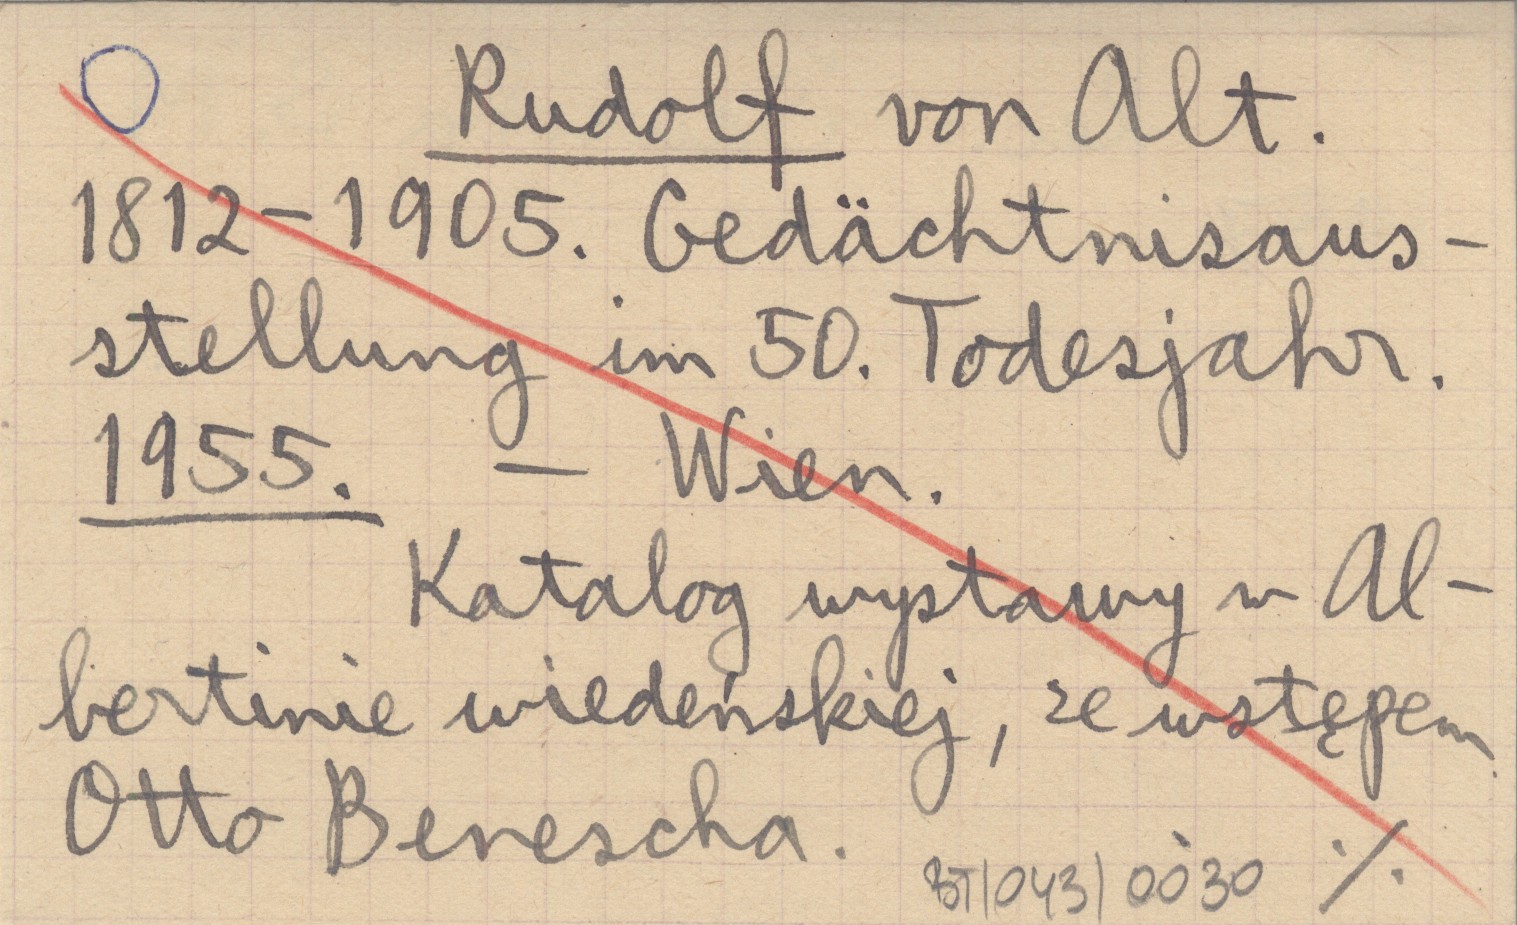 Rudolf von Alt.
1812-1905. Gedächtnisaus-
stellung im 50. Todesjahr.
1955. — Wien.
Katalog wystawy w Al-
bertinie wiedeńskiej, ze wstępem
Otto Benescha.
BT/043/0030 ·/.